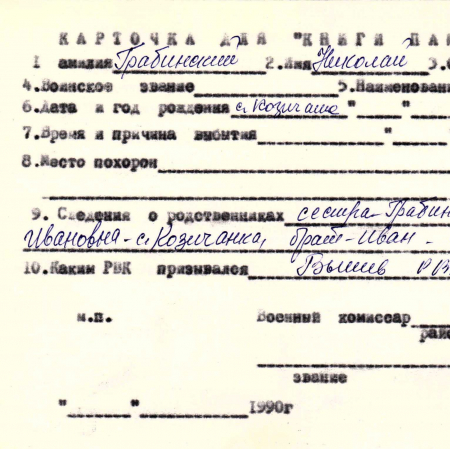 КАРТОЧКА ДЛЯ "КНИГИ ПА
1 амилия Грабинский 2.Имя Николай 3.О
4.Воинское звание 5.Наименован
6.Дата и год рождения с. Козичанка " "
7.Время и причина выбытия " "
8.Место похорон
9. Сведения о родственниках сестра Грабин
Ивановна - с. Козичанка, брат - Иван -
10.Каким РВК призывался Бышев РВ
м.п. Военный комиссар
райо
звание
" " 1990г